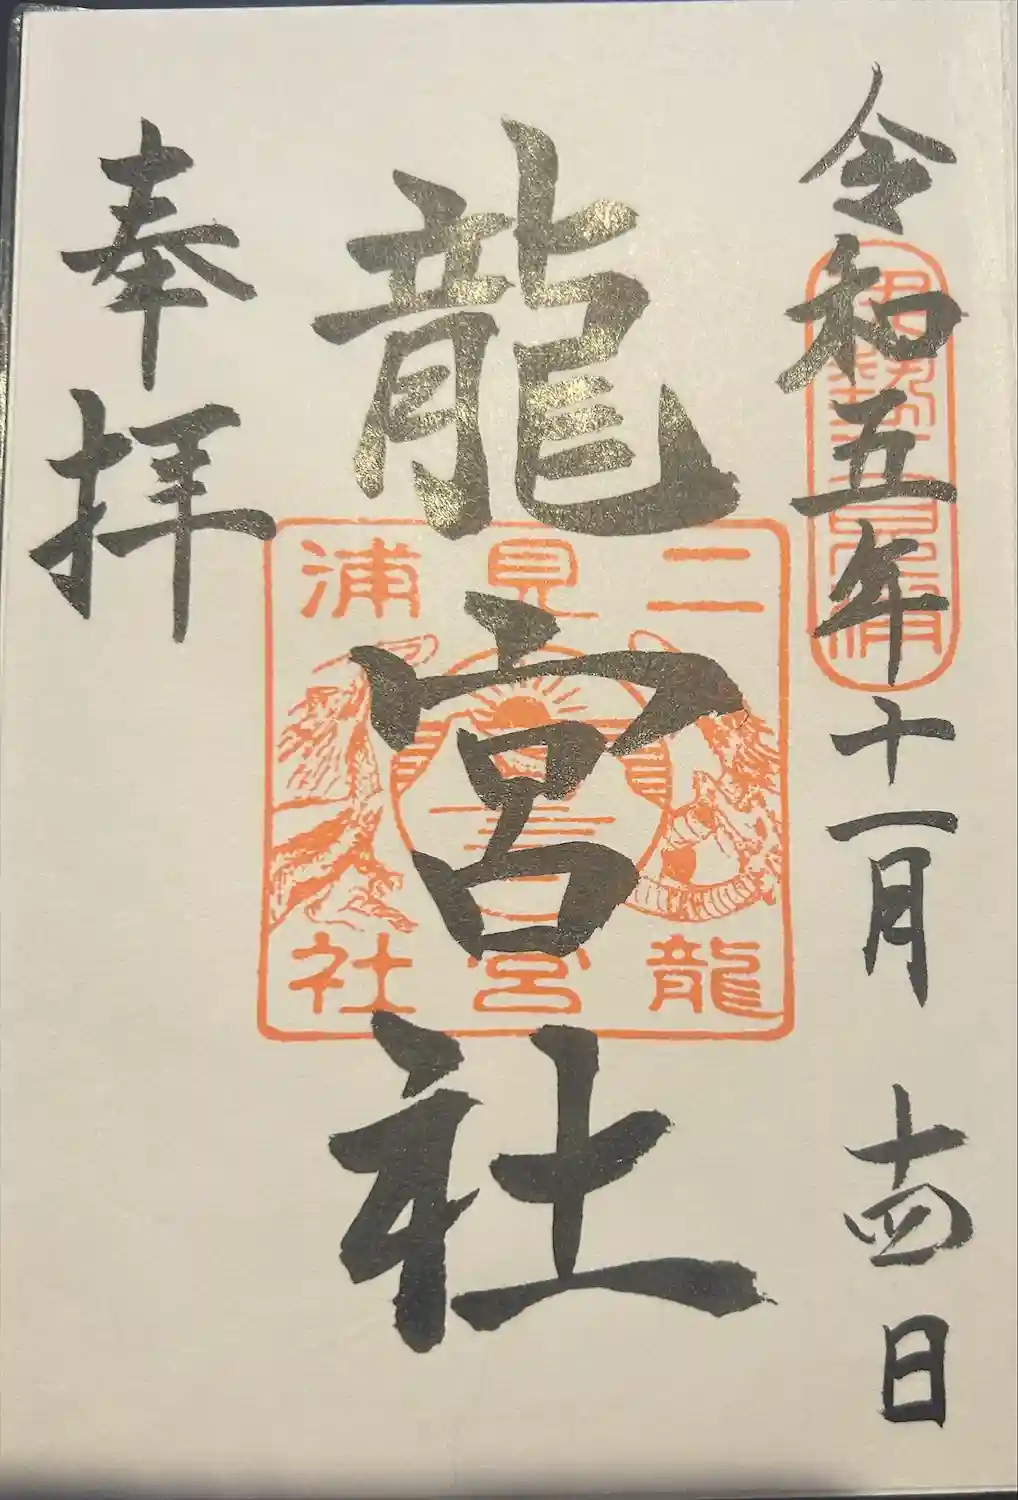 令和五年十一月十四日
伊勢二見浦
龍宮社
二見浦
龍宮社
奉拝